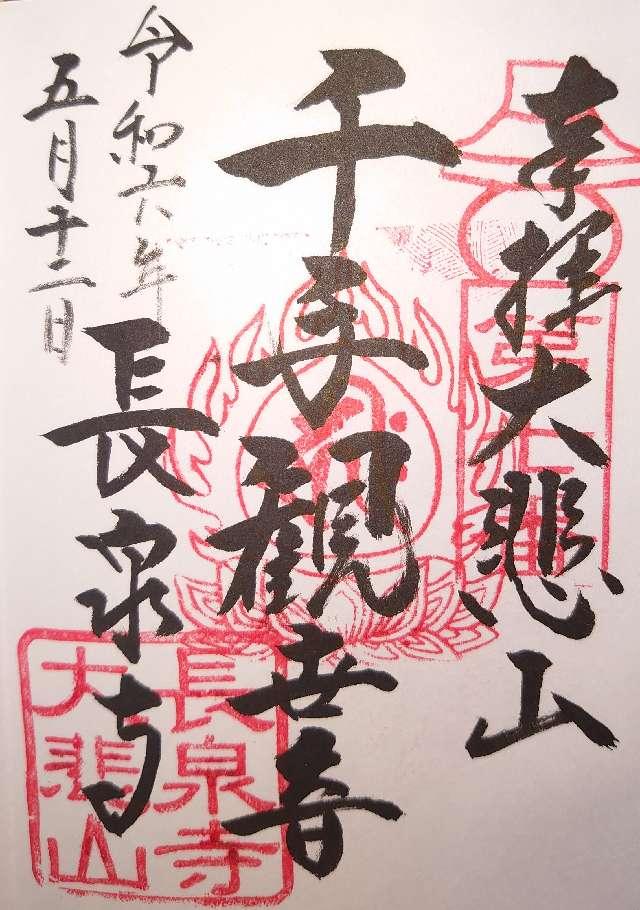 奉拝大悲山
千手観世音
長泉寺
令和六年
五月十二日
長泉寺
大悲山